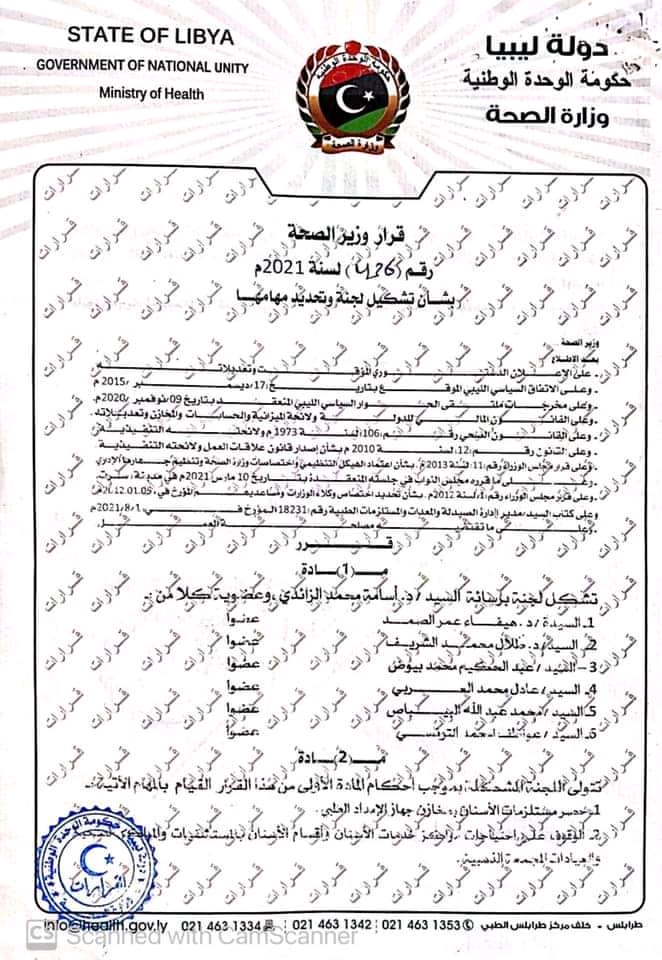 STATE OF LIBYA
GOVERNMENT OF NATIONAL UNITY
Ministry of Health
دولة ليبيا
حكومة الوحدة الوطنية
وزارة الصحة
حكومة الوحدة الوطنية
وزارة الصحة
قرار وزير الصحة
رقم (426) لسنة 2021م
بشأن تشكيل لجنة وتحديد مهامها
وزير الصحة
بعد الاطلاع
ـ على الإعلان الدستوري المؤقت وتعديلاته
ـ وعلى الاتفاق السياسي الليبي الموقع بتاريخ:17/ديسمبر/2015م
ـ وعلى مخرجات ملتقى الحوار السياسي الليبي المنعقد بتاريخ 09/نوفمبر/2020م.
ـ وعلى القانون المالي للدولة ولائحة الميزانية والحسابات والمخازن وتعديلاته
ـ وعلى القانون الصحي رقم:106 لسنة 1973م ولائحته التنفيذية
ـ وعلى القانون رقم:12 لسنة 2010م بشأن إصدار قانون علاقات العمل ولائحته التنفيذية
ـ وعلى قرار مجلس الوزراء رقم:11 لسنة 2013م. بشأن اعتماد الهيكل التنظيمي واختصاصات وزارة الصحة وتنظيم جهازها الإداري
ـ وعلى ما قرره مجلس النواب في جلسته المنعقدة بتاريخ 10 مارس 2021م في مدينة سرت
ـ وعلى قرار مجلس الوزراء رقم:4 لسنة 2012م. بشأن تحديد اختصاص وكلاء الوزارات ومساعديهم المؤرخ في
وعلى كتاب السيد/مدير إدارة الصيدلة والمعدات والمستلزمات الطبية رقم:18231 المؤرخ في 2021/8/1م.
ـ وعلى ما تقتضيه مصلحة العمل.
قـــرر
مـــ(1)ـــادة
تشكل لجنة برئاسة السيد /د. أسامة محمد الزائدي ،وعضوية كلا من :ـ
1ـ السيدة/د. هيفاء عمر الصمد عضوا
2ـ السيد/د. طلال محمد الشريف عضوا
3ـ السيد/ عبد الحكيم محمد بيوض عضوا
4ـ السيد /عادل محمد العربي عضوا
5ـ السيد /محمد عبد الله البهباص عضوا
6ـ السيد/ احمد التونسي عضوا
مـــ(2)ـــادة
تتولى اللجنة المشكلة بموجب أحكام المادة الأولى من هذا القرار القيام بالمهام الآتية:ـ
1ـ حصر مستلزمات الأسنان بمخازن جهاز الإمداد الطبي.
2ـ الوقوف على احتياجات خدمات الأسنان وأقسام الأسنان بالمستشفيات
والعيادات المجمعة
info@health.gov.ly 021 463 1334 021 463 1342 021 463 1353 طرابلس - خلف مركز طرابلس الطبي
CS Scanned with CamScanner